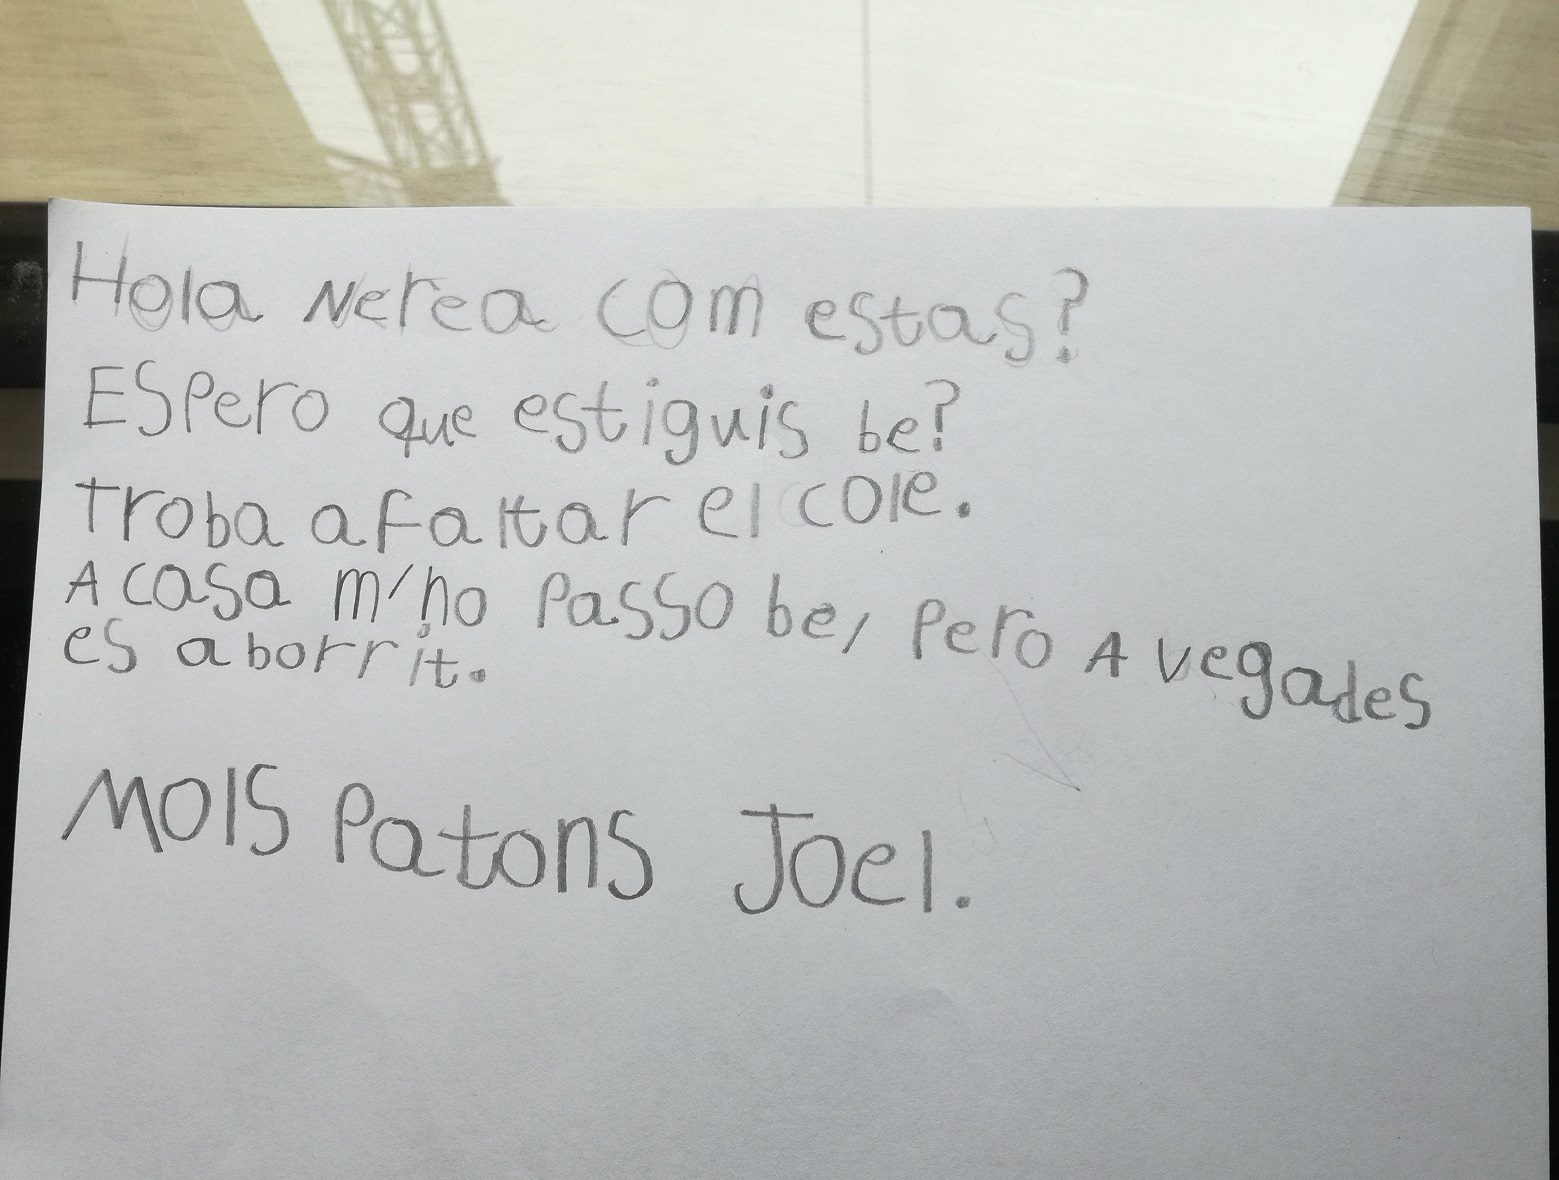 Hola Nerea com estas?
Espero que estiguis be?
troba a faltar el cole.
A casa m'ho passo be, pero A vegades
es aborrit.
MOlS Patons Joel.